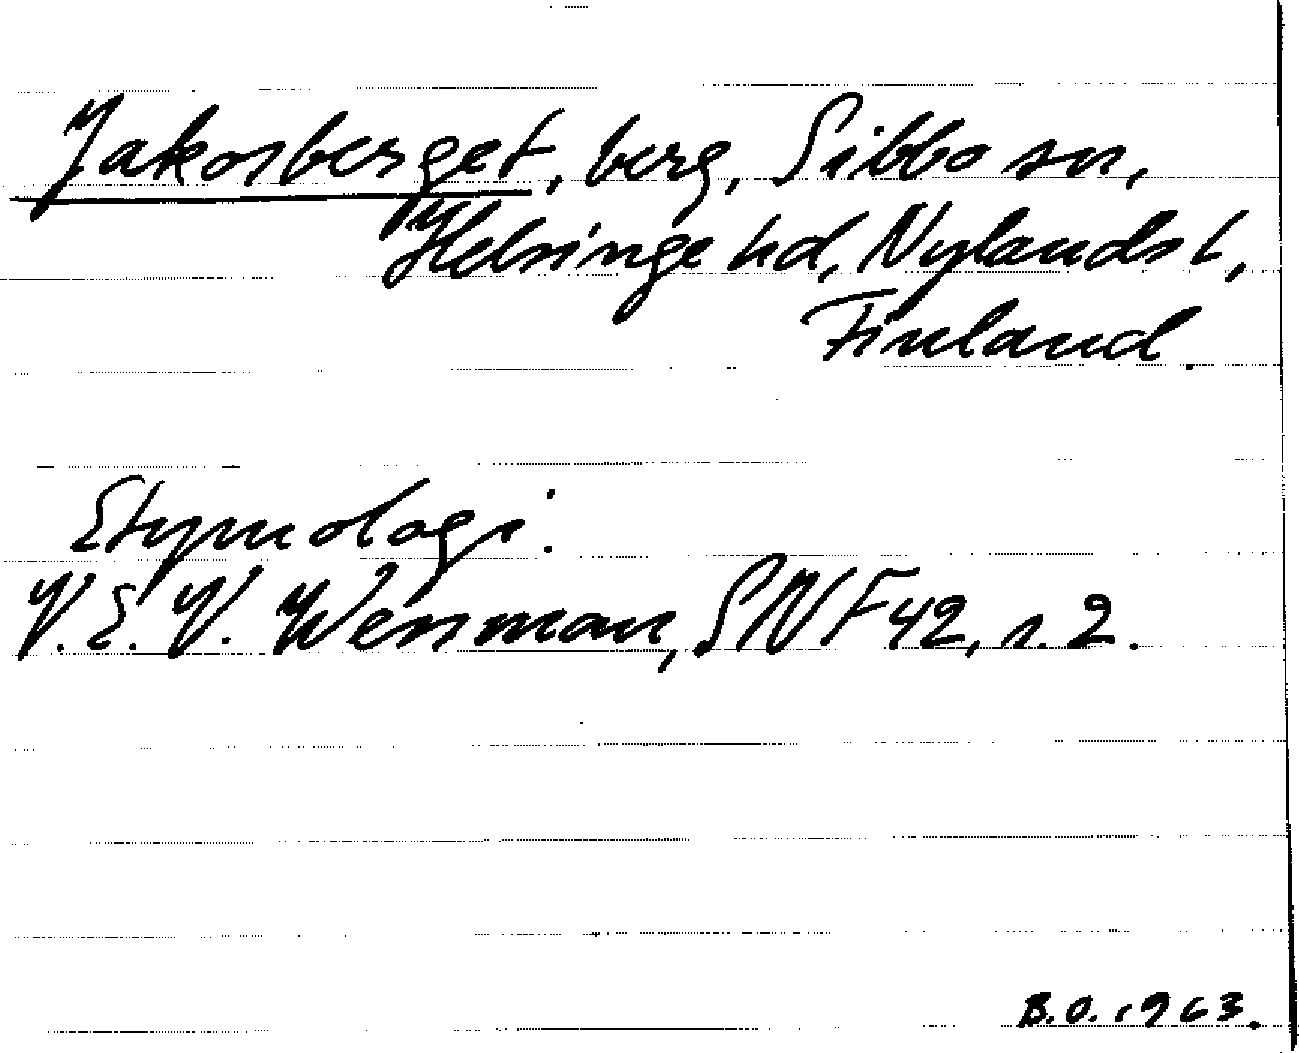 Jakosberget, berg, Sibbo sn,
Helsinge hd, Nylands l,
Finland.
Etymologi:
V.E.V. Wessman, SNF 42, s. 2.
B.O. 1963.